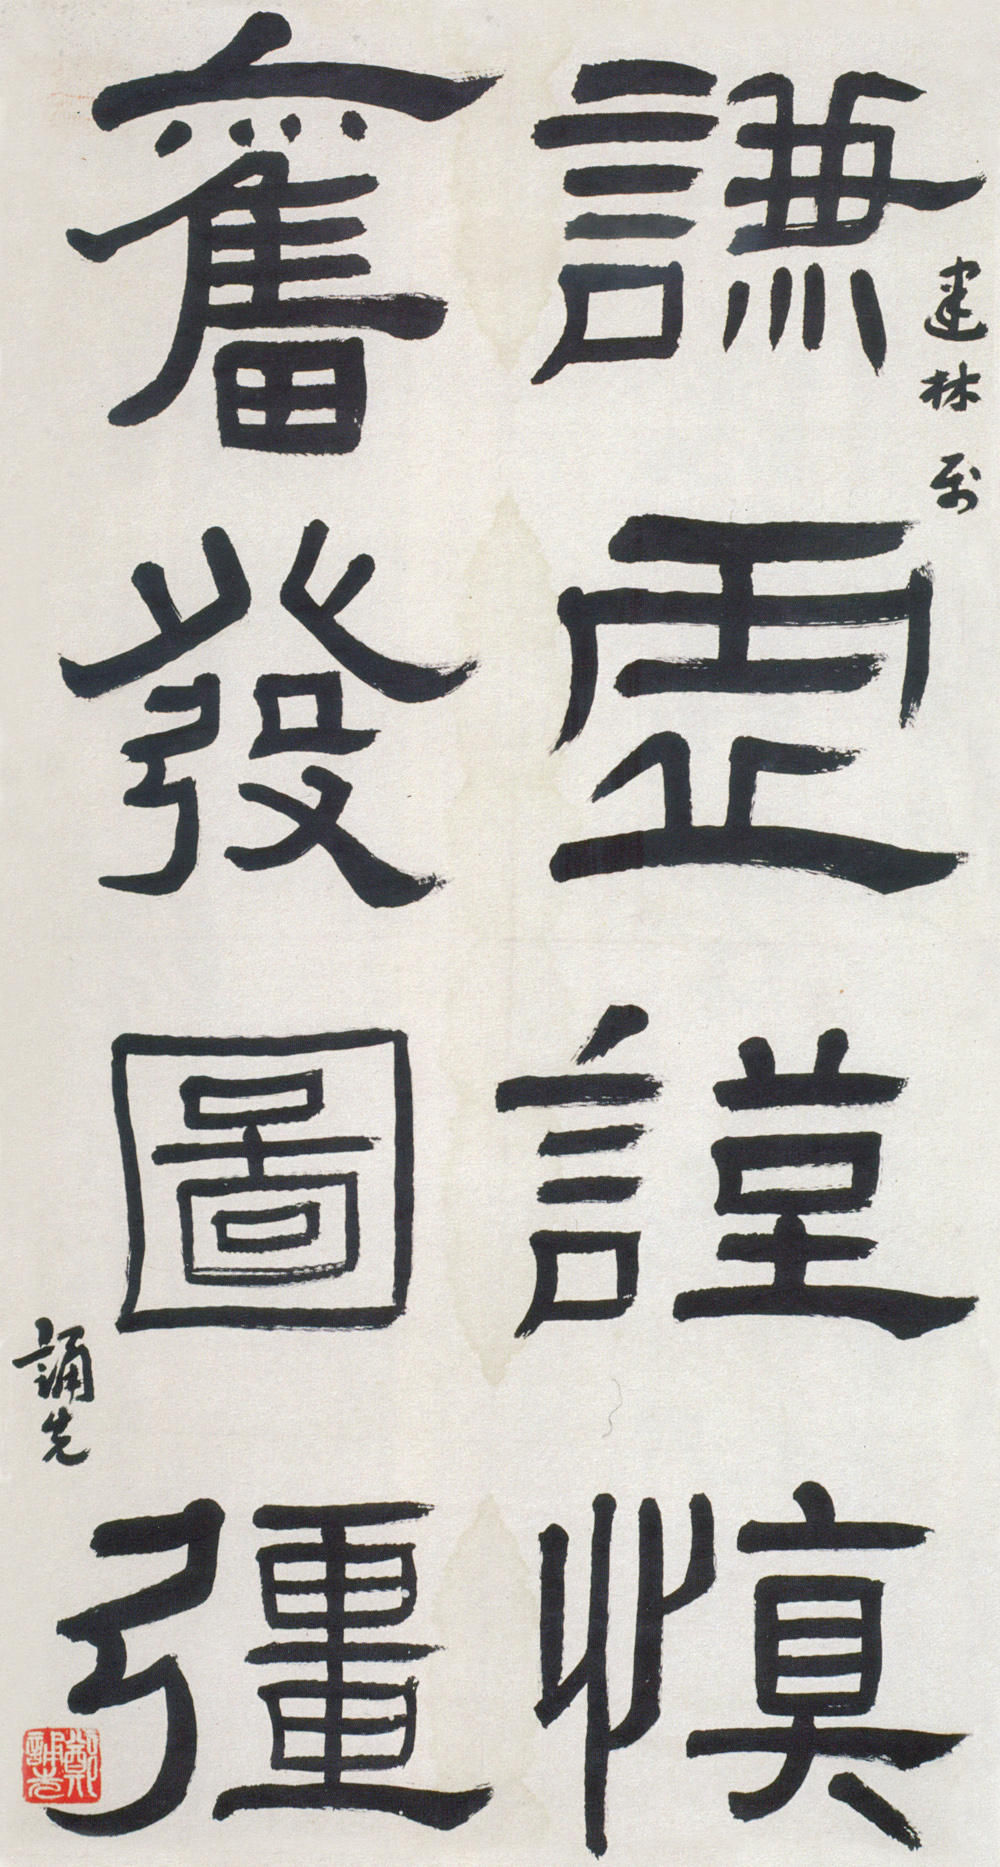 謙虛謹慎
建林屬
奮發圖彊
誦先
鄭誦先